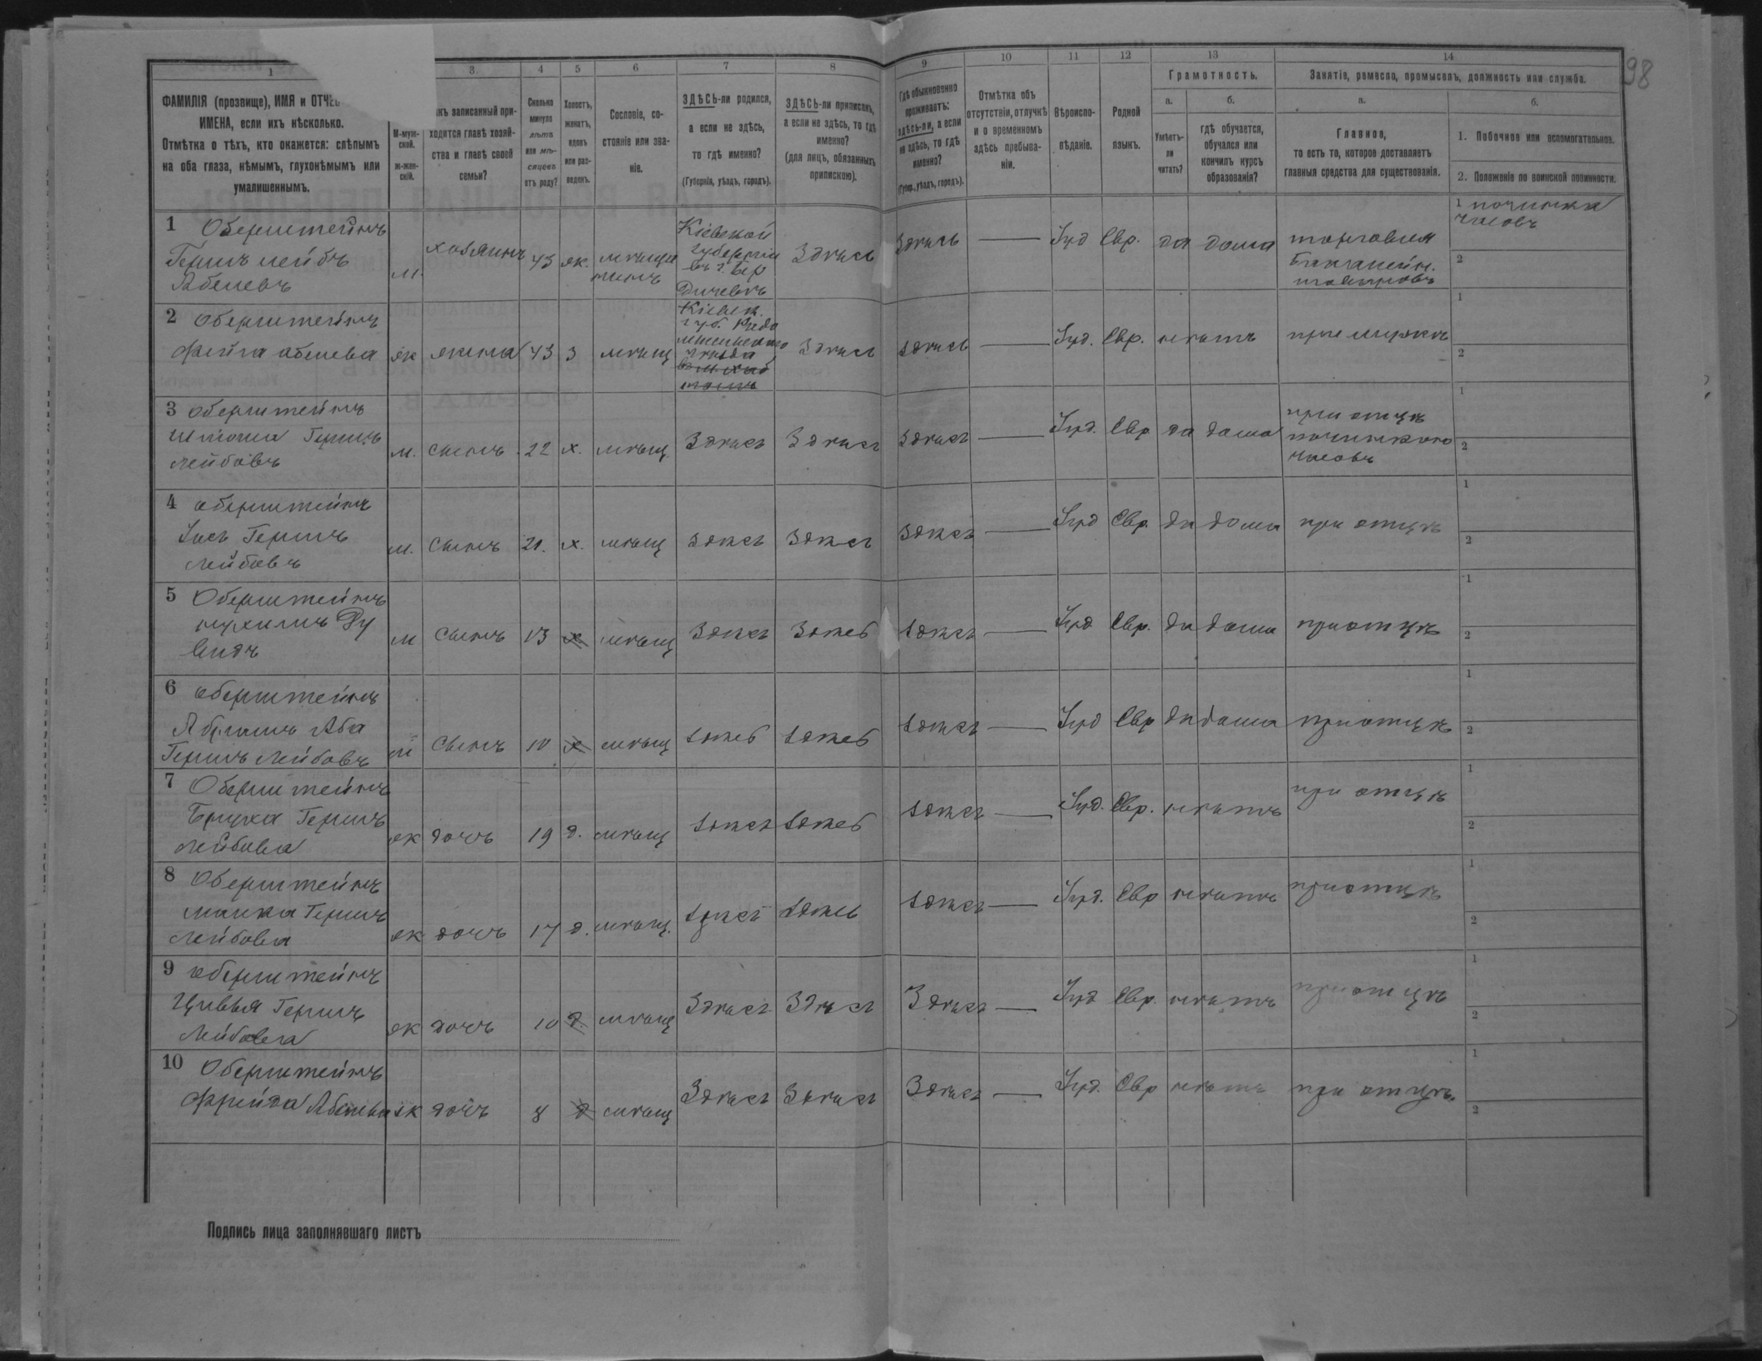 98
1
3
4
5
6
7
8
9
10
11
12
13
14
ФАМИЛІЯ (прозвище), ИМЯ и ОТЧЕ
ИМЕНА, если ихъ нѣсколько.
Отмѣтка о тѣхъ, кто окажется: слѣпымъ
на оба глаза, нѣмымъ, глухонѣмымъ или
умалишеннымъ.
М-муж-
ской.
ж-жен-
скій.
къ записанный при-
ходится главѣ хозяй-
ства и главѣ своей
семьи?
Сколько
минуло
лѣтъ
или мѣ-
сяцевъ
отъ роду?
Холостъ,
женатъ,
вдовъ
или раз-
веденъ.
Сословіе, со-
стояніе или зва-
ніе.
ЗДѢСЬ-ли родился,
а если не здѣсь,
то гдѣ именно?
(Губернія, уѣздъ, городъ).
ЗДѢСЬ-ли приписанъ,
а если не здѣсь, то гдѣ
именно?
(для лицъ, обязанныхъ
припискою).
Гдѣ обыкновенно
проживаетъ:
здѣсь-ли, а если
не здѣсь, то гдѣ
именно?
(Губер., уѣздъ, городъ).
Отмѣтка объ
отсутствіи, отлучкѣ
и о временномъ
здѣсь пребыва-
ніи.
Вѣроиспо-
вѣданіе.
Родной
языкъ.
Грамотность.
а.
Умѣетъ-
ли
читать?
б.
гдѣ обучается,
обучался или
кончилъ курсъ
образованія?
Занятіе, ремесло, промыселъ, должность или служба.
а.
Главное,
то есть то, которое доставляетъ
главныя средства для существованія.
б.
1. Побочное или вспомогательное.
2. Положеніе по воинской повинности.
1 Оберштейнъ
Гершъ лейбъ
Абелевъ
м. хозяинъ 43 ж. мѣща
нинъ
Кіевской
губерніи
въ г. Бер
дичевѣ
Здѣсь Здѣсь — Іуд Евр. да дома
торговля
Бакалейн.
товаровъ
1 починка
часовъ
2
2 Оберштейнъ
Фейга Абелева жк жена 43 з мѣщ
Кіевск.
губ.
Здѣсь здѣсь — Іуд. Евр. нѣтъ при мужѣ
1
2
3 Оберштейнъ
Гершъ
Лейбовъ
м. сынъ 22 х. мѣщ Здѣсь Здѣсь здѣсь — Іуд. Евр да дома
при отцѣ
часовъ
1
2
4 Оберштейнъ
Іосъ Гершъ
Лейбовъ
м. сынъ 21. х. мѣщ здѣсь здѣсь здѣсь — Іуд Евр. да дома при отцѣ
1
2
5 Оберштейнъ
Ду
видъ
м сынъ 13 х мѣщ здѣсь здѣсь здѣсь — Іуд Евр. да дома при отцѣ
1
2
6 Оберштейнъ
Абрамъ Аба
Гершъ Лейбовъ
м сынъ 10 х мѣщ здѣсь здѣсь здѣсь — Іуд Евр да дома при отцѣ
1
2
7 Оберштейнъ
Бруха Гершъ
Лейбова
жк дочь 19 д. мѣщ здѣсь здѣсь здѣсь — Іуд. Евр. нѣтъ при отцѣ
1
2
8 Оберштейнъ
Малка Гершъ
Лейбова
жк дочь 17 д. мѣщ. здѣсь здѣсь здѣсь — Іуд. Евр нѣтъ при отцѣ
1
2
9 Оберштейнъ
Цивья Гершъ
Лейбова
жк дочь 10 д мѣщ Здѣсь Здѣсь Здѣсь — Іуд Евр. нѣтъ при отцѣ
1
2
10 Оберштейнъ
Фрейда Абелева жк дочь 8 д мѣщ Здѣсь Здѣсь Здѣсь — Іуд. Евр нѣтъ при отцѣ
1
2
Подпись лица заполнявшаго листъ